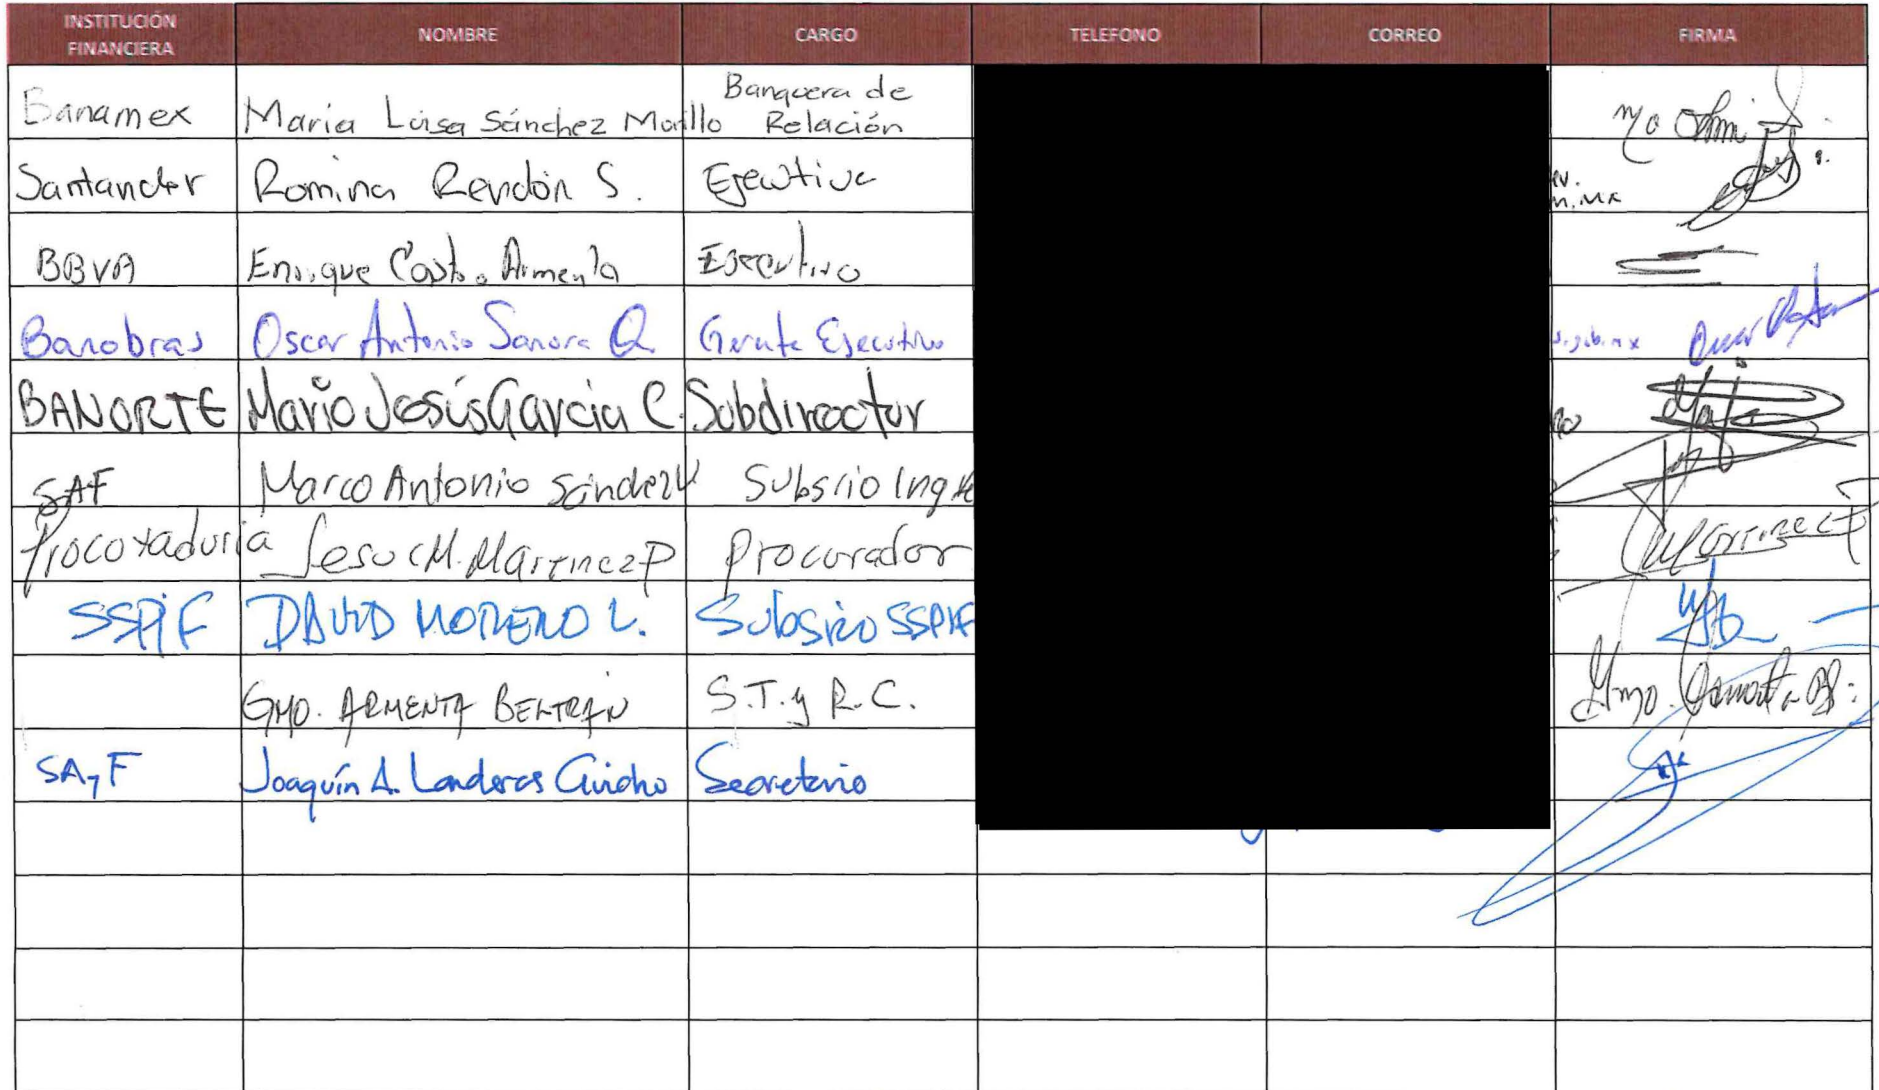 INSTITUCIÓN FINANCIERA NOMBRE CARGO TELEFONO CORREO FIRMA
Banamex Maria Luisa Sánchez Morillo Banquera de Relación
Santander Romina Rendón S. Ejecutiva
BBVA Enrique Castro Armenta Ejecutivo
Banobras Oscar Antonio Sanora Q. Gerente Ejecutivo
BANORTE Mario Jesús García C. Subdirector
SAF Marco Antonio Sánchez Subsrio Ingre
Procuraduría Jesus M. Martinez P Procurador Martinez P
SSPIF DAVID MORENO L. Subsrio SSPIF
GMO. ARMENTA BELTRÁN S.T. y R.C. Gmo. Armenta B.
SAyF Joaquín A. Landeros Guicho Secretario